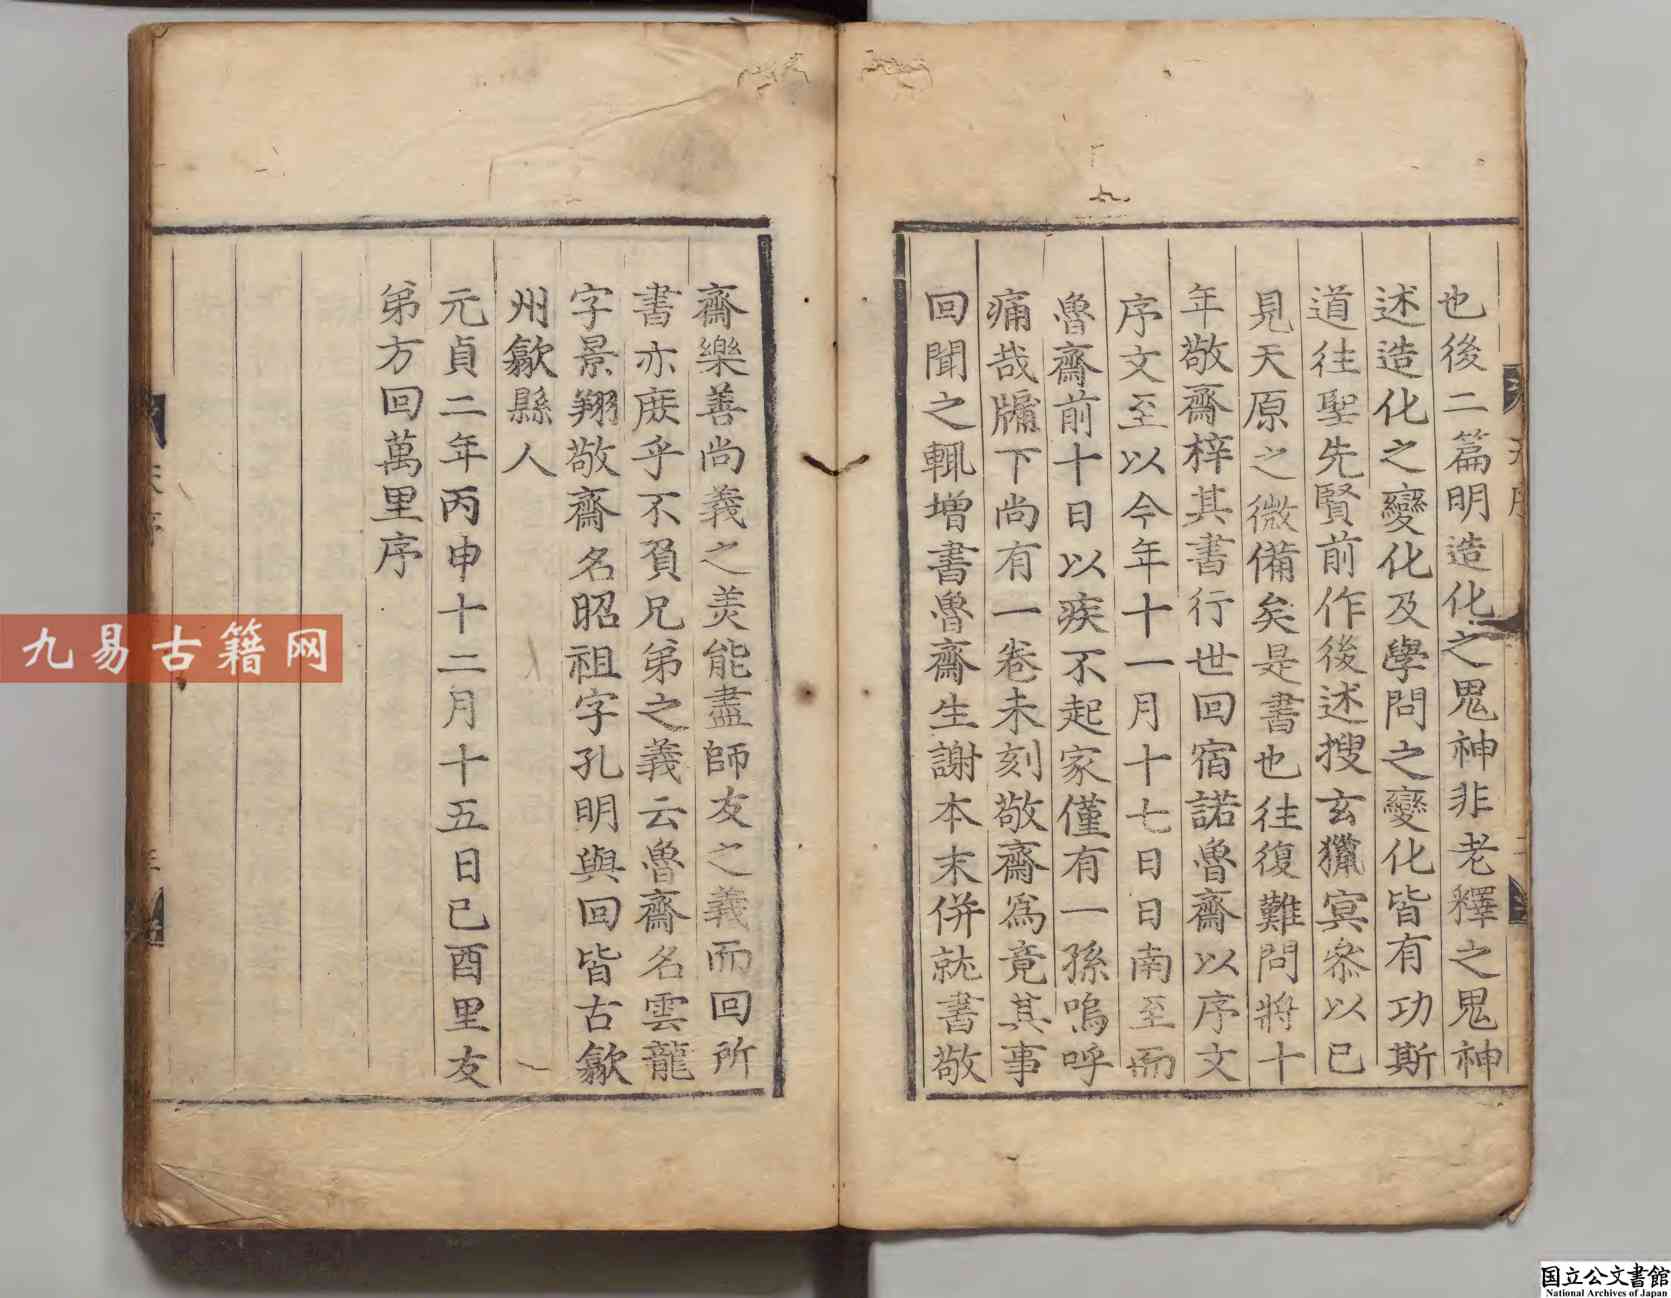 也後二篇明造化之鬼神非老釋之鬼神
述造化之變化及學問之變化皆有功斯
道往聖先賢前作後述搜玄獵冥叅以已
見天原之微備矣是書也往復難問將十
年敬齋梓其書行世回宿諾魯齋以序文
序文至以今年十一月十七日日南至而
魯齋前十日以疾不起家僅有一孫嗚呼
痛哉牖下尚有一卷未刻敬齋爲竟其事
回聞之輒增書魯齋生謝本末併就書敬
齋樂善尚義之羙能盡師友之義而回所
書亦庻乎不負兄弟之義云魯齋名雲龍
字景翔敬齋名昭祖字孔明與回皆古歙
州歙縣人
元貞二年丙申十二月十五日己酉里友
弟方回萬里序
九易古籍网
国立公文書館
National Archives of Japan